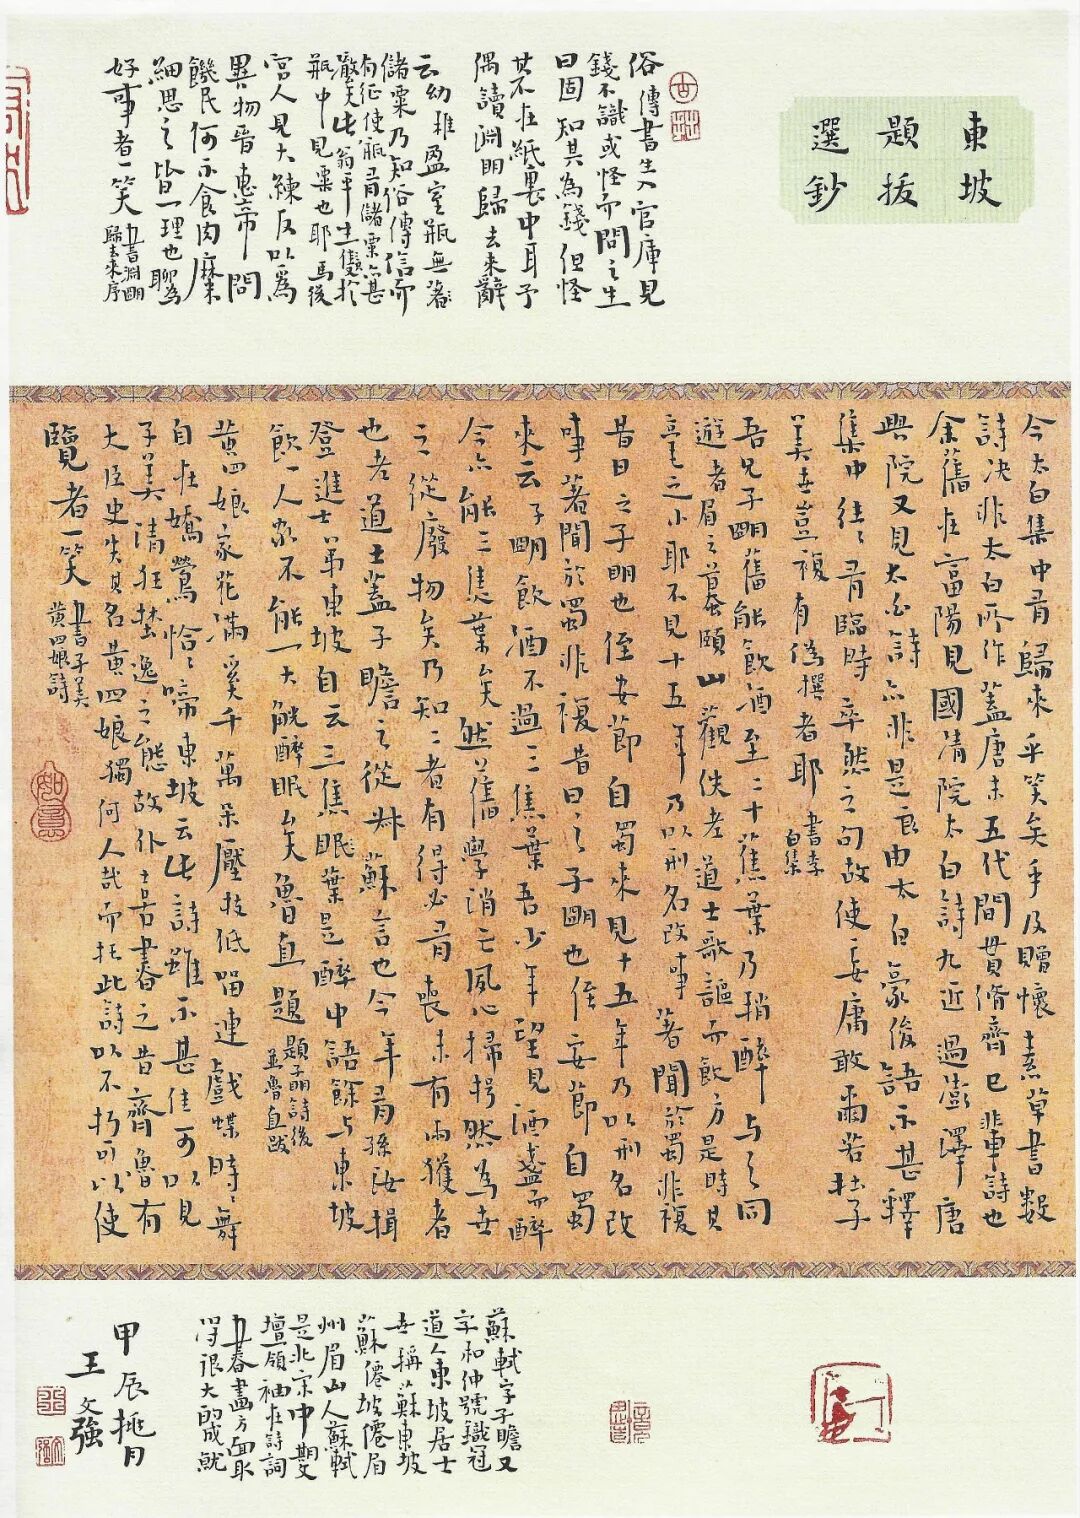 東坡
題拔
選鈔
俗傳書生入官庫見
錢不識或怪而問之生
曰固知其為錢但怪
其不在紙裏中耳予
偶讀淵明歸去來辭
云幼稚盈室瓶無
儲粟乃知俗傳信而
有征使瓶有儲粟亦甚
微矣此翁平生隻於
瓶中見粟也耶馬後
宮人見大練反以爲
異物晉惠帝問
饑民何不食肉糜
細思之皆一理也聊為
好事者一笑
書淵明
歸去來序
今太白集中有歸來乎笑矣乎及贈懷素草書數
詩決非太白所作蓋唐末五代間貫脩齊己輩詩也
余舊在富陽見國清院太白詩九近過彭澤唐
興院又見太白詩亦非是良由太白豪俊語不甚釋
集中往往有臨時率然之句故使妄庸敢爾若杜子
美世豈複有偽撰者耶
書李
白集
吾兄子明舊能飲酒至二十蕉葉乃稍醉與之同
遊者眉之蟇頤山觀佚老道士歌謳而飲方是時其
豪之小耶不見十五年乃以刑名改事著聞於蜀非複
昔日之子明也侄安節自蜀來見十五年乃以刑名改
事著聞於蜀非複昔日之子明也侄安節自蜀
來云子明飲酒不過三焦葉吾少年望見酒盞而醉
今亦能三焦葉矣然舊學消亡夙心掃捋然為世
之從廢物矣乃知二者有得必有喪未有兩獲者
也老道士蓋子瞻之從叔蘇言也今年有孫汝揖
登進士第東坡自云三焦葉是醉中語餘與東坡
飲一人家不能一大觥醉眠矣魯直題
題子明詩後
並魯直跋
黃四娘家花滿奚千萬朵壓枝低留連戲蝶時時舞
自在嬌鶯恰恰啼東坡云此詩雖不甚佳可以見
子美清狂埜逸之態故仆喜書之昔齊魯有
大臣史失其名黃四娘獨何人哉而托此詩以不朽可以使
覽者一笑
書子美
黃四娘詩
蘇軾字子瞻又
字和仲號鐵冠
道人東坡居士
世稱蘇東坡
蘇僊坡僊眉
州眉山人蘇軾
是北宋中期文
壇領袖在詩詞
書畫方面取
得很大的成就
甲辰桃月
王文強